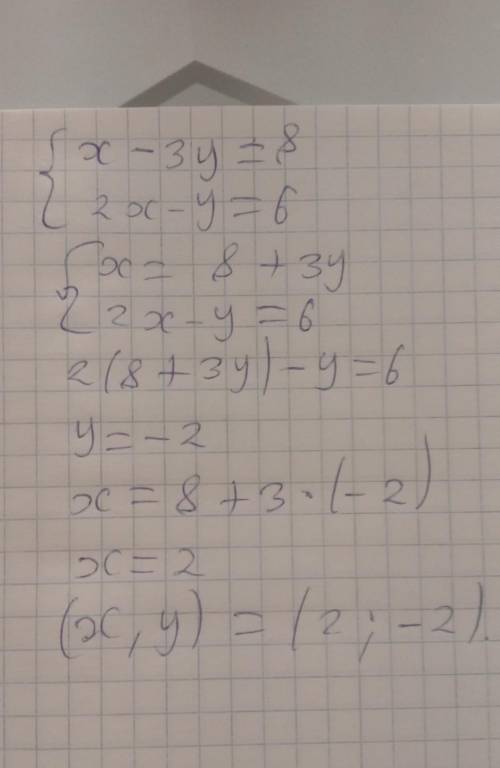 { x - 3y = 8
2x - y = 6
{ x = 8 + 3y
2x - y = 6
2(8 + 3y) - y = 6
y = -2
x = 8 + 3 · (-2)
x = 2
(x, y) = (2; -2).